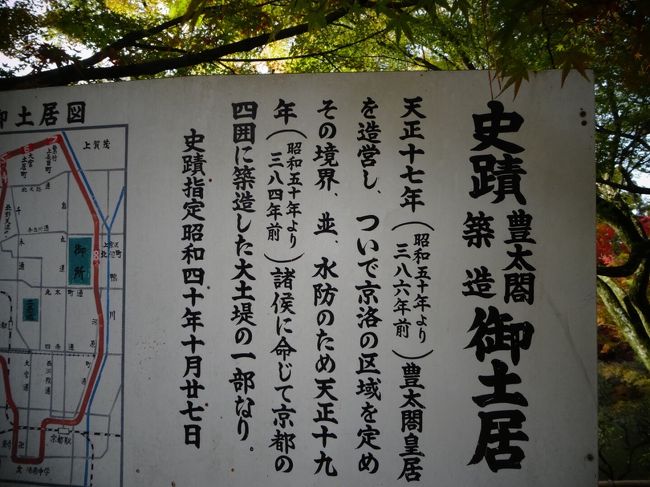 史蹟 豊太閤築造 御土居
天正十七年(昭和五十年より三八六年前)豊太閤皇居
を造営し、ついで京洛の区域を定め
その境界、並、水防のため天正十九
年(昭和五十年より三八四年前)諸侯に命じて京都の
四囲に築造した大土堤の一部なり.
史蹟指定昭和四十年十月廿七日
御土居図
上賀茂
御所
鴨
川
河原
丸太町通
四条通
京都駅